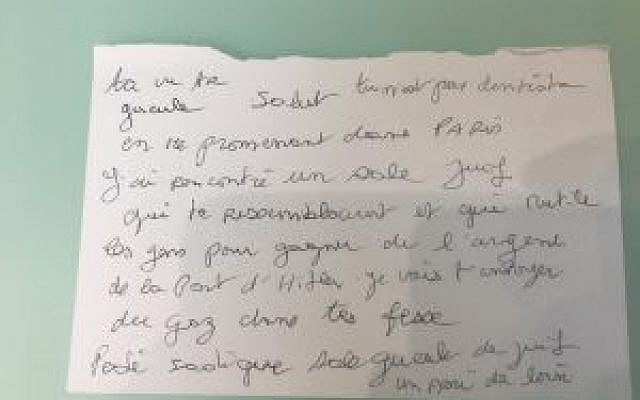 ta vu ta
gueule salut tu n'est pas dentiste
en me promenant dans PARIS
j'ai rencontré un sale juif
qui te ressemblaient et qui mutile
les gens pour gagner de l'argent
de la Part d'Hitler je vais t'envoyer
du gaz dans tes fesse
sadique sale gueule de juif
un de